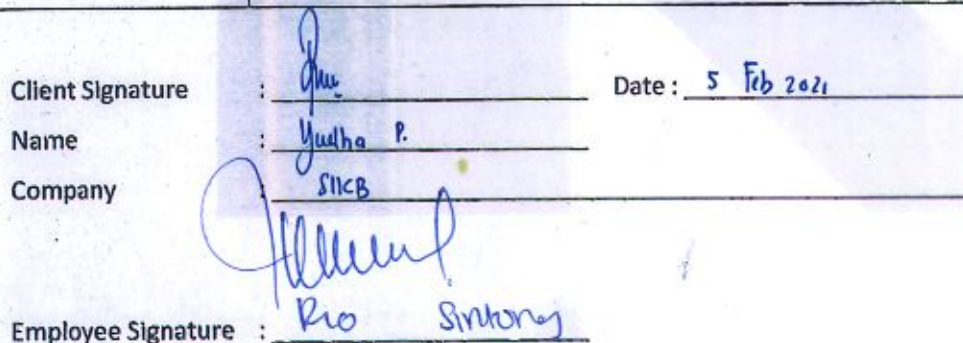 Client Signature : Date : 5 Feb 2021
Name : Yudha P.
Company : SIICB
Employee Signature : Rio Sintong